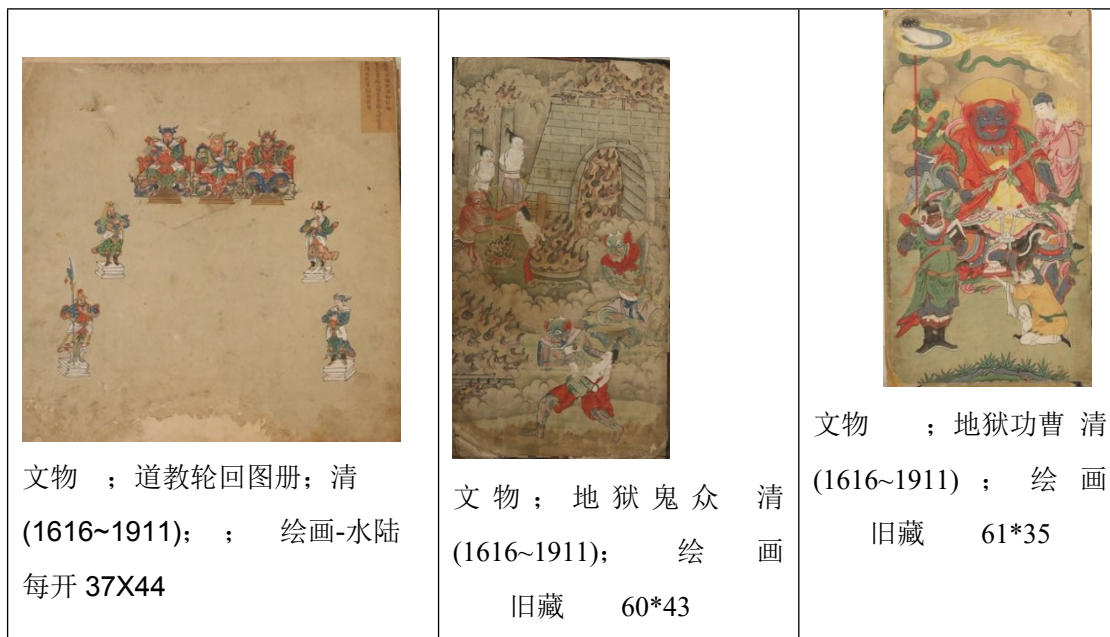 文物　；道教轮回图册；清
(1616~1911)；　；　绘画-水陆
每开 37X44
文物；地狱鬼众　清
(1616~1911)；　绘　画
旧藏　60*43
文物　；地狱功曹 清
(1616~1911)　；　绘　画
旧藏　61*35